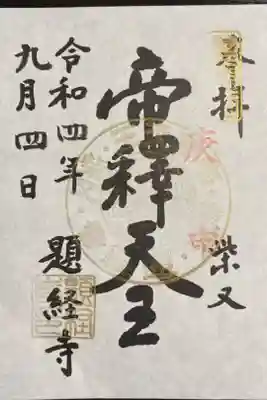 奉拝
柴又
庚申
帝釋天王
題経寺
令和四年
九月四日